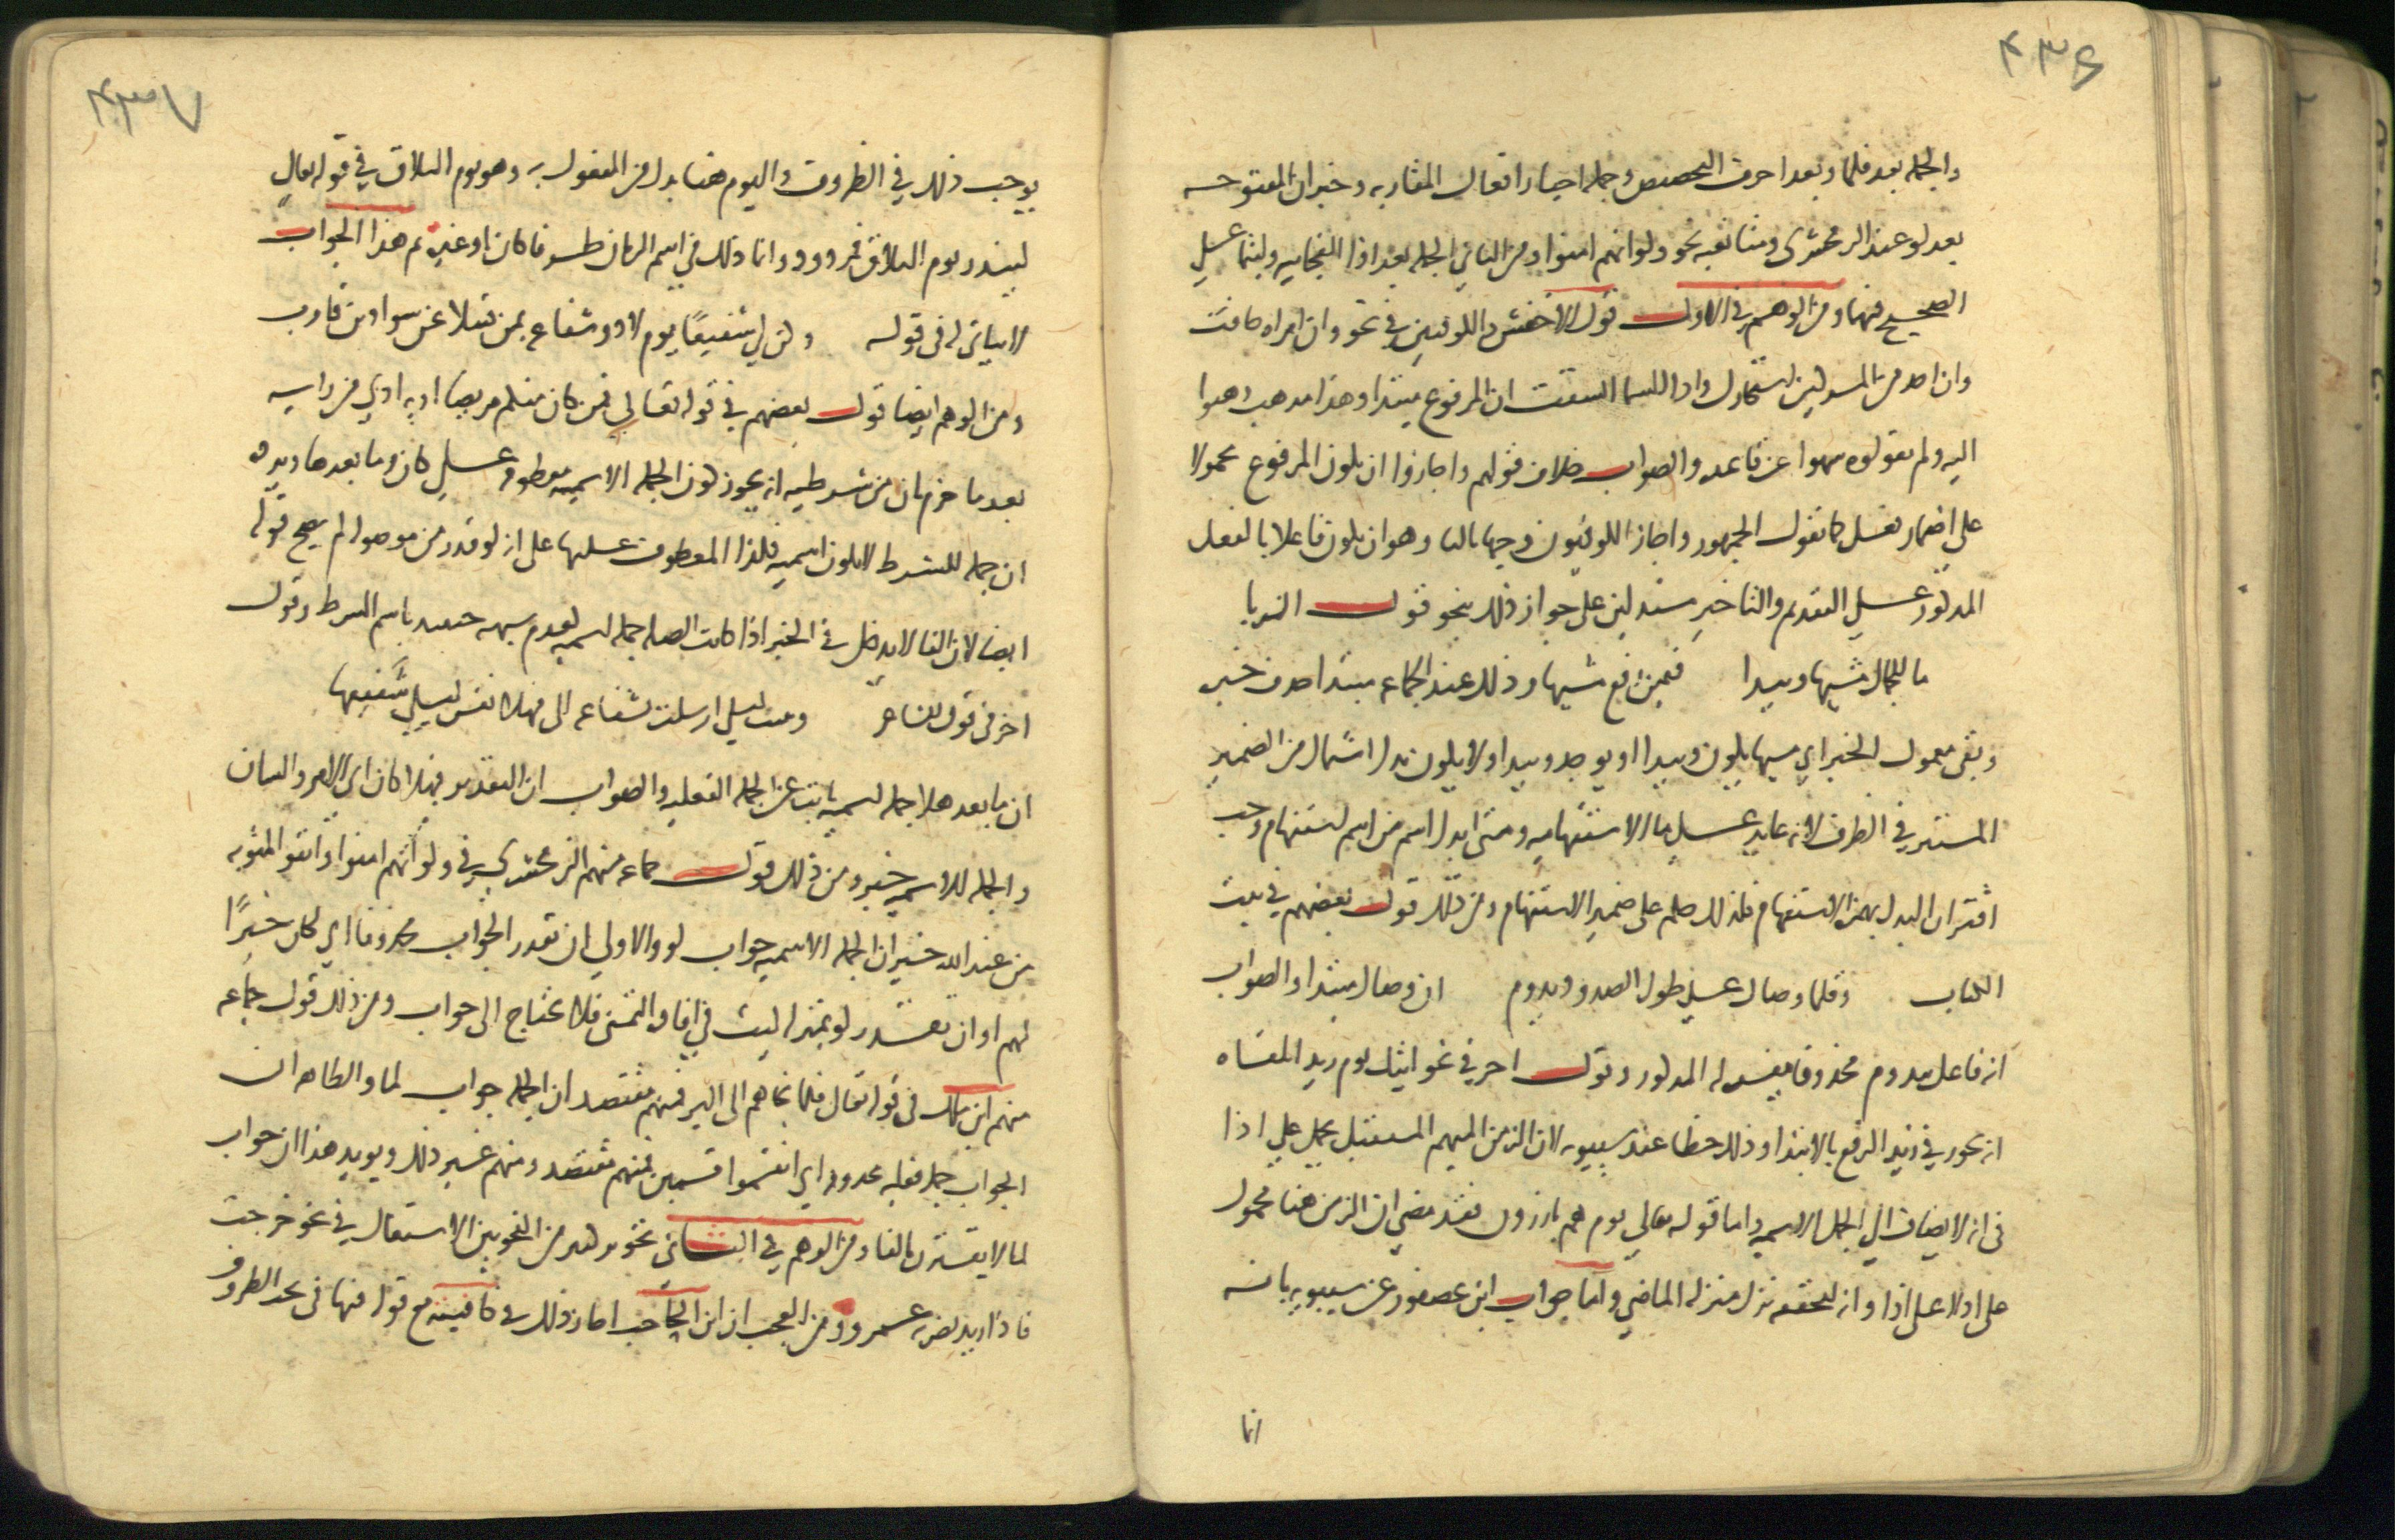 ۴۳۶
والجمله بعد قلما وبعد احرف التحضيض وجمله اخبار افعال المقاربه وخبر ان المفتوحه
بعد لو عند الزمخشري ومتابعيه نحو ولو انهم امنوا ومن الثاني الجمله بعد اذا الفجاييه وليتما على
الصحيح فيهما ومن الوهم في الاول قول الاخفش والكوفيين في نحو وان امراه خافت
وان احد من المشركين استجارك واذا السما انشقت ان المرفوع مبتدا وهذا مذهب ذهبوا
اليه ولم يقولوه سهوا عن قاعده والصواب خلاف قولهم واجازوا ان يكون المرفوع محمولا
على اضمار فعل كما يقول الجمهور واجاز الكوفيون وجها ثالثا وهو ان يكون فاعلا بالفعل
المذكور على التقديم والتاخير مستدلين على جواز ذلك بنحو قول الزبا
ما للجمال مشيها وييدا فيمن رفع مشيها وذلك عند الجماعه مبتدا حذف خبره
وبقى معمول الخبر اي مشيها يكون وييدا او يوجد وييدا ولا يكون بدل اشتمال من الضمير
المستتر في الظرف لانه عايد على ما الاستفهاميه ومتى ابدل اسم من اسم استفهام وجب
اقتران البدل بهمزه الاستفهام فكذلك حكم على ضمير الاستفهام ومن ذلك قول بعضهم في بيت
الكتاب وقلما وصال على طول الصدود يدوم ان وصال مبتدا والصواب
انه فاعل بيدوم محذوفا يفسره المذكور وقول اخر في نحو اتيك يوم زيدا تلقاه
انه يجوز في زيد الرفع بالابتدا وذلك خطا عند سيبويه لان الزمن المبهم المستقبل يحمل على اذا
في انه لا يضاف الى الجمل الاسميه واما قوله تعالى يوم هم بارزون فقد مضى ان الزمن هنا محمول
على اذ لا على اذا وانه لتحققه نزل منزله الماضي واما جواب ابن عصفور عن سيبويه بانه
انما
۴۳۷
يوجب ذلك في الظروف واليوم هنا بدل من المفعول به وهو يوم التلاق في قوله تعالى
لينذر يوم التلاق فمردود وانما ذلك في اسم الزمان ظرفا كان او غيره ثم هذا الجواب
لا يتاتى له في قوله وكن لي شفيعًا يوم لا ذو شفاعه بمغن فتيلا عن سواد بن قارب
ومن الوهم ايضا قول بعضهم في قوله تعالى فمن كان منكم مريضا او به اذى من راسه
بعد ما جزم بان من شرطيه انه يجوز كون الجمله الاسميه معطوفه على كان وما بعدها ويرده
ان جمله الشرط لا تكون اسميه فكذا المعطوف عليها على انه لو قدر من موصوله لم يصح قوله
ايضا لان الفا لا يدخل في الخبر اذا كانت الصله جمله اسميه لعدم شبهه حينيذ باسم الشرط وقول
اخر في قول الشاعر ونبئت ليلى ارسلت بشفاعه الى فهلا نفس ليلى شفيعها
ان ما بعد هلا جمله اسميه نابت عن الجمله الفعليه والصواب ان التقدير فهلا كان اي الامر والشان
والجمله الاسميه خبر ومن ذلك قول جماعه منهم الزمخشري في ولو انهم امنوا واتقوا لمثوبه
من عند الله خير ان الجمله الاسميه جواب لو والاولى ان تقدر الجواب محذوفا اي لكان خيرًا
لهم او ان تقدر لو بمنزله ليت في افاده التمني فلا تحتاج الى جواب ومن ذلك قول جماعه
منهم ابن مالك في قوله تعالى فلما نجاهم الى البر فمنهم مقتصد ان الجمله جواب لما والظاهر ان
الجواب جمله فعليه محذوفه اي انقسموا قسمين فمنهم مقتصد ومنهم غير ذلك ويويد هذا ان جواب
لما لا يقترن بالفا ومن الوهم في الثاني تجويز كثير من النحويين الاشتغال في نحو خرجت
فاذا زيد يضربه عمرو ومن العجب ان ابن الحاجب اجاز ذلك في كافيته مع قوله فيها في بحث الظروف